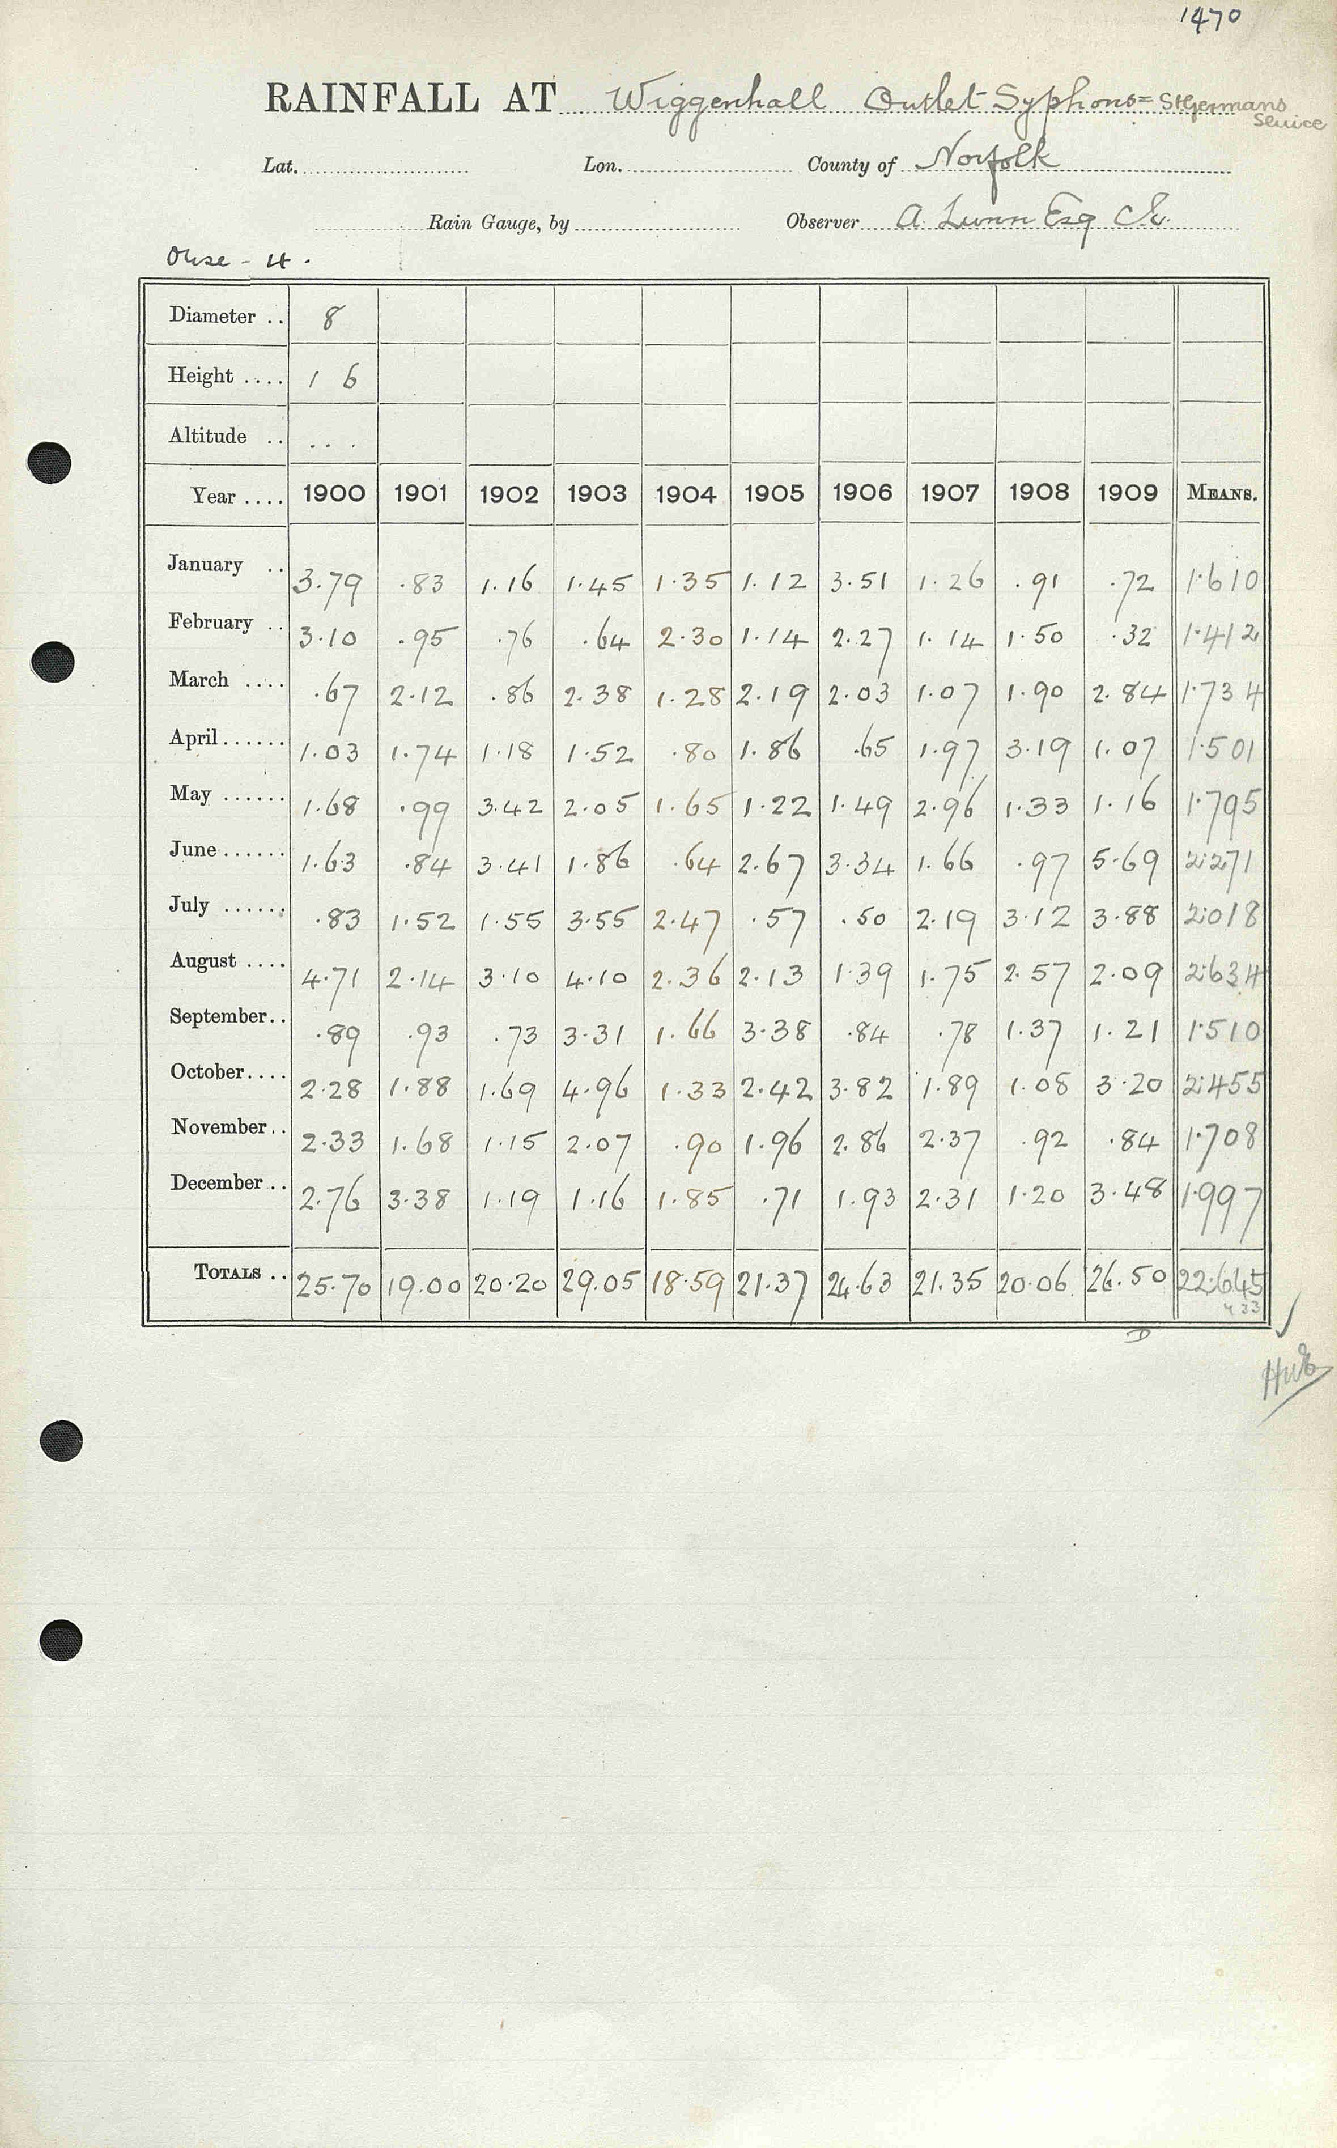 1470
RAINFALL AT Wiggenhall Outlet Syphons = St Germans
Sluice
Lat. Lon. County of Norfolk
Rain Gauge, by Observer A. Lunn Esq C.E.
Ouse - 4.
Diameter .. 8
Height .... 1 6
Altitude .. ...
Year .... 1900 1901 1902 1903 1904 1905 1906 1907 1908 1909 MEANS.
January .. 3.79 .83 1.16 1.45 1.35 1.12 3.51 1.26 .91 .72 1.610
February .. 3.10 .95 .76 .64 2.30 1.14 2.27 1.14 1.50 .32 1.412
March .... .67 2.12 .86 2.38 1.28 2.19 2.03 1.07 1.90 2.84 1.734
April...... 1.03 1.74 1.18 1.52 .80 1.86 .65 1.97 3.19 1.07 1.501
May ...... 1.68 .99 3.42 2.05 1.65 1.22 1.49 2.96 1.33 1.16 1.795
June...... 1.63 .84 3.41 1.86 .64 2.67 3.34 1.66 .97 5.69 2.271
July ...... .83 1.52 1.55 3.55 2.47 .57 .50 2.19 3.12 3.88 2.018
August .... 4.71 2.14 3.10 4.10 2.36 2.13 1.39 1.75 2.57 2.09 2.634
September.. .89 .93 .73 3.31 1.66 3.38 .84 .78 1.37 1.21 1.510
October.... 2.28 1.88 1.69 4.96 1.33 2.42 3.82 1.89 1.08 3.20 2.455
November.. 2.33 1.68 1.15 2.07 .90 1.96 2.86 2.37 .92 .84 1.708
December.. 2.76 3.38 1.19 1.16 1.85 .71 1.93 2.31 1.20 3.48 1.997
TOTALS .. 25.70 19.00 20.20 29.05 18.59 21.37 24.63 21.35 20.06 26.50 22.645
D